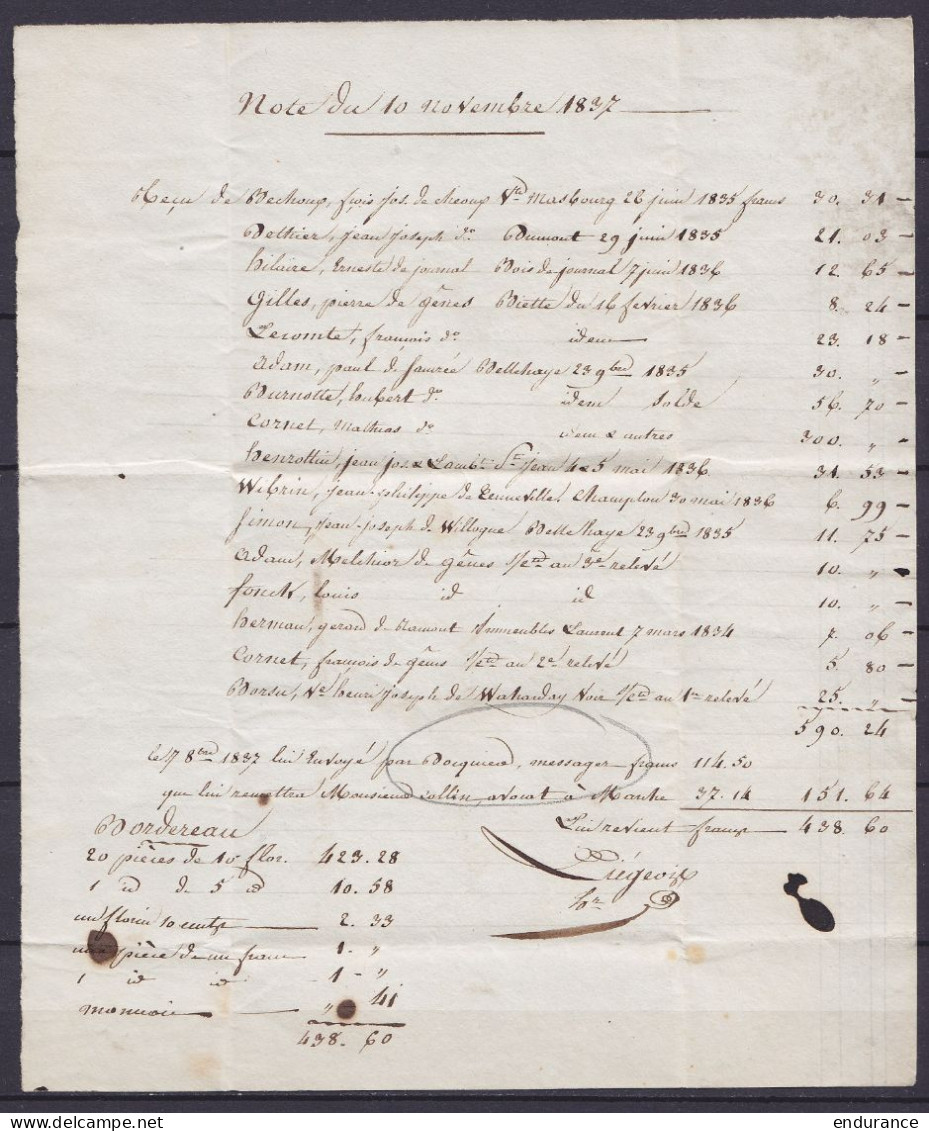 Note du 10 novembre 1837
Reçu de Dechoux, fçois jos. de cheoux Vte Masbourg 26 juin 1835 francs 30. 31 -
Delhier, jean joseph do. Dumont 29 juin 1835 21. 03 -
hilaire, Erneste de journal Bois de journal 7 juin 1836 12. 65 -
Gilles, pierre de gênes Piette du 16 fevrier 1836 8. 24 -
Lecomte, francois do idem 23. 18 -
adam, paul de Samrée Dellehaye 23 9bre 1835 30. „ -
Burnotte, hubert do. idem Solde 56. 70 -
Cornet, Mathias do idem & autres 300. „ -
henrottin, jean jos. & Lambt. St jean 4 & 5 mai 1836 31. 53 -
Wibrin, jean-philippe de Tenneville. Champlon 30 mai 1836 6. 99 -
Simon, jean-joseph de Willogne Dellehaye 23 9bre 1835 11. 75 -
adam, Melchior de gênes s/ed au 3e relevé 10. „
fonck, louis id id 10. „ -
herman, gerard de Ramont immeubles Laurent 7 mars 1834 7. 06 -
Cornet, francois de gênes s/ed au 2e relevé 5. 80 -
Borsu, Ve henri joseph de Waharday Voir s/ed au 1er relevé 25. „ -
590. 24
le 7 8bre 1837 lui Envoyé par messager francs 114.50
que lui remettra Monsieur collin, avocat à Marche 37.14 151. 64
Lui revient francs 438. 60
Bordereau
20 pièces de 10 flor. 423.28
1 id de 5 id 10.58
un florin 10 cents 2. 33
une pièce de un franc 1. „
1 id id 1 - „
monnoie „ 41
438. 60
Liégeois
endurance